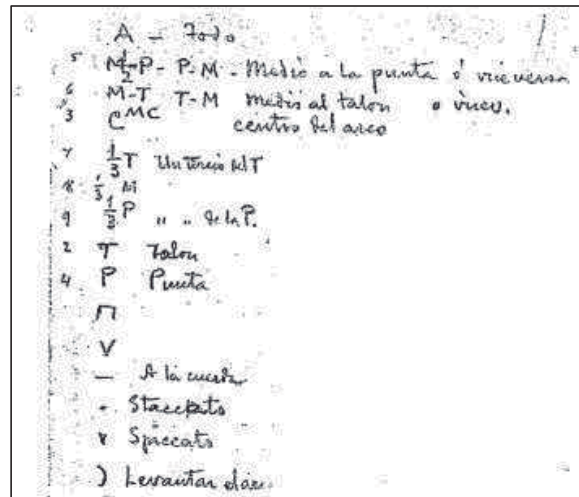 A - Todo
5 M ½ P - P-M - Medio a la punta ó viceversa
6 M-T T-M medio al talon o vicev.
3 C MC centro del arco
7 1/3 T Un tercio del T
8 1/3 M
9 1/3 P " " de la P.
2 T Talon
4 P Punta
⊓
V
— A la cuerda
. Staccato
Spiccato
) Levantar el arco